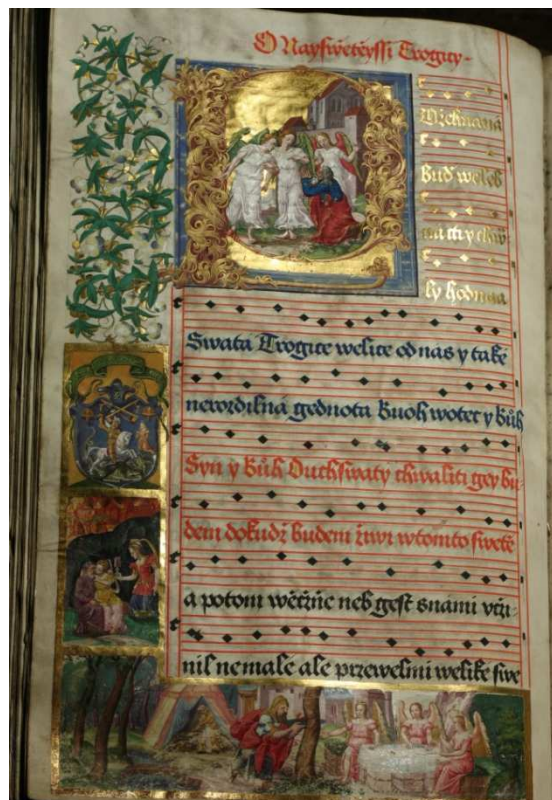 O Nayswětěyssi Trogity
Pożehnana
Buď weleb
na cti y chwa
ly hodnaa
Swata Trogice welice od nas y take
nerozdilná gednota Buoh wotec y Bůh
Syn y Bůh Duch Swaty chwaliti gey bu-
dem dokudž budem žiwi w tomto swětě
a potom wěčňe neb gest s nami včzi-
nil ne male ale przewelmi welike swe